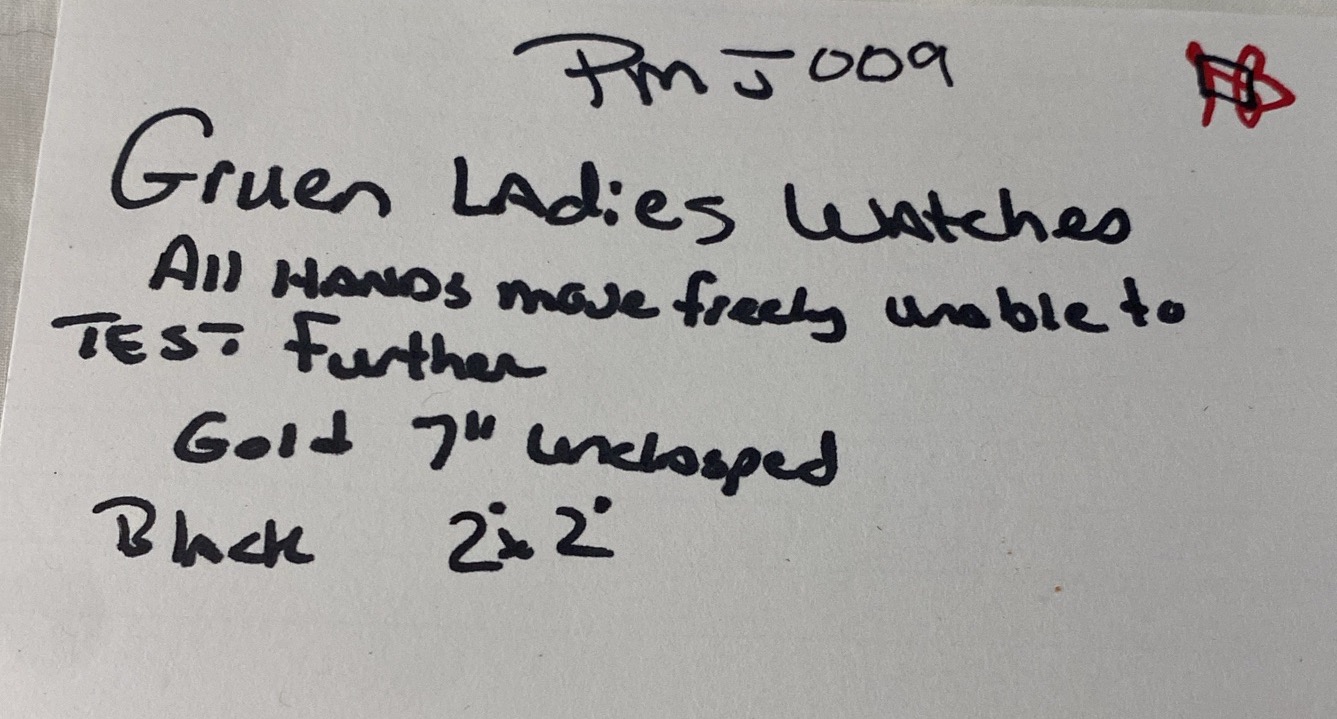 PMJ009
Gruen LAdies Watches
All HANDS move freely unable to
TEST Further
Gold 7" unclasped
Black 2"x 2"